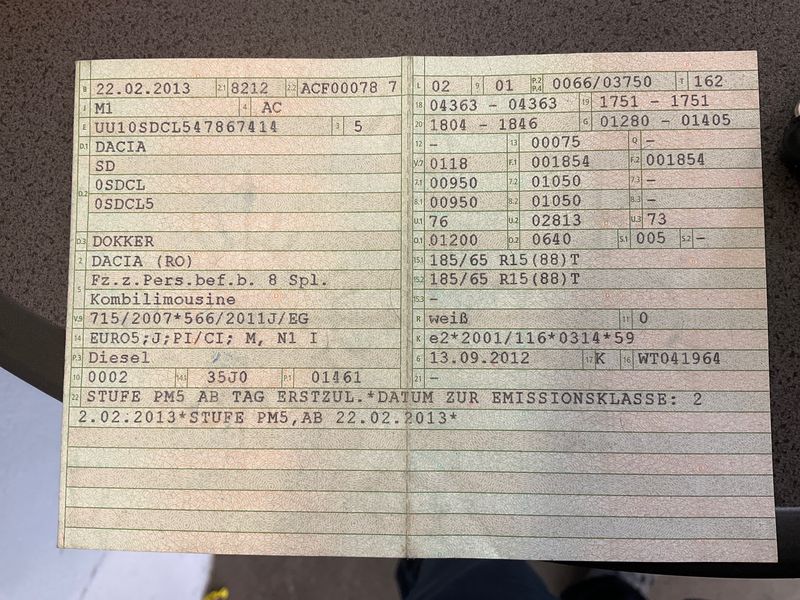 B 22.02.2013 2.1 8212 2.2 ACF00078 7
J M1 4 AC
E UU10SDCL547867414 3 5
D.1 DACIA
D.2 SD
0SDCL
0SDCL5
D.3 DOKKER
2 DACIA (RO)
5 Fz.z.Pers.bef.b. 8 Spl.
Kombilimousine
V.9 715/2007*566/2011J/EG
14 EURO5;J;PI/CI; M, N1 I
P.3 Diesel
10 0002 14.1 35J0 P.1 01461
L 02 9 01 P.2 P.4 0066/03750 T 162
18 04363 - 04363 19 1751 - 1751
20 1804 - 1846 G 01280 - 01405
12 - 13 00075 Q -
V.7 0118 F.1 001854 F.2 001854
7.1 00950 7.2 01050 7.3 -
8.1 00950 8.2 01050 8.3 -
U.1 76 U.2 02813 U.3 73
O.1 01200 O.2 0640 S.1 005 S.2 -
15.1 185/65 R15(88)T
15.2 185/65 R15(88)T
15.3 -
R weiß 11 0
K e2*2001/116*0314*59
6 13.09.2012 17 K 16 WT041964
21 -
22 STUFE PM5 AB TAG ERSTZUL.*DATUM ZUR EMISSIONSKLASSE: 2
2.02.2013*STUFE PM5,AB 22.02.2013*